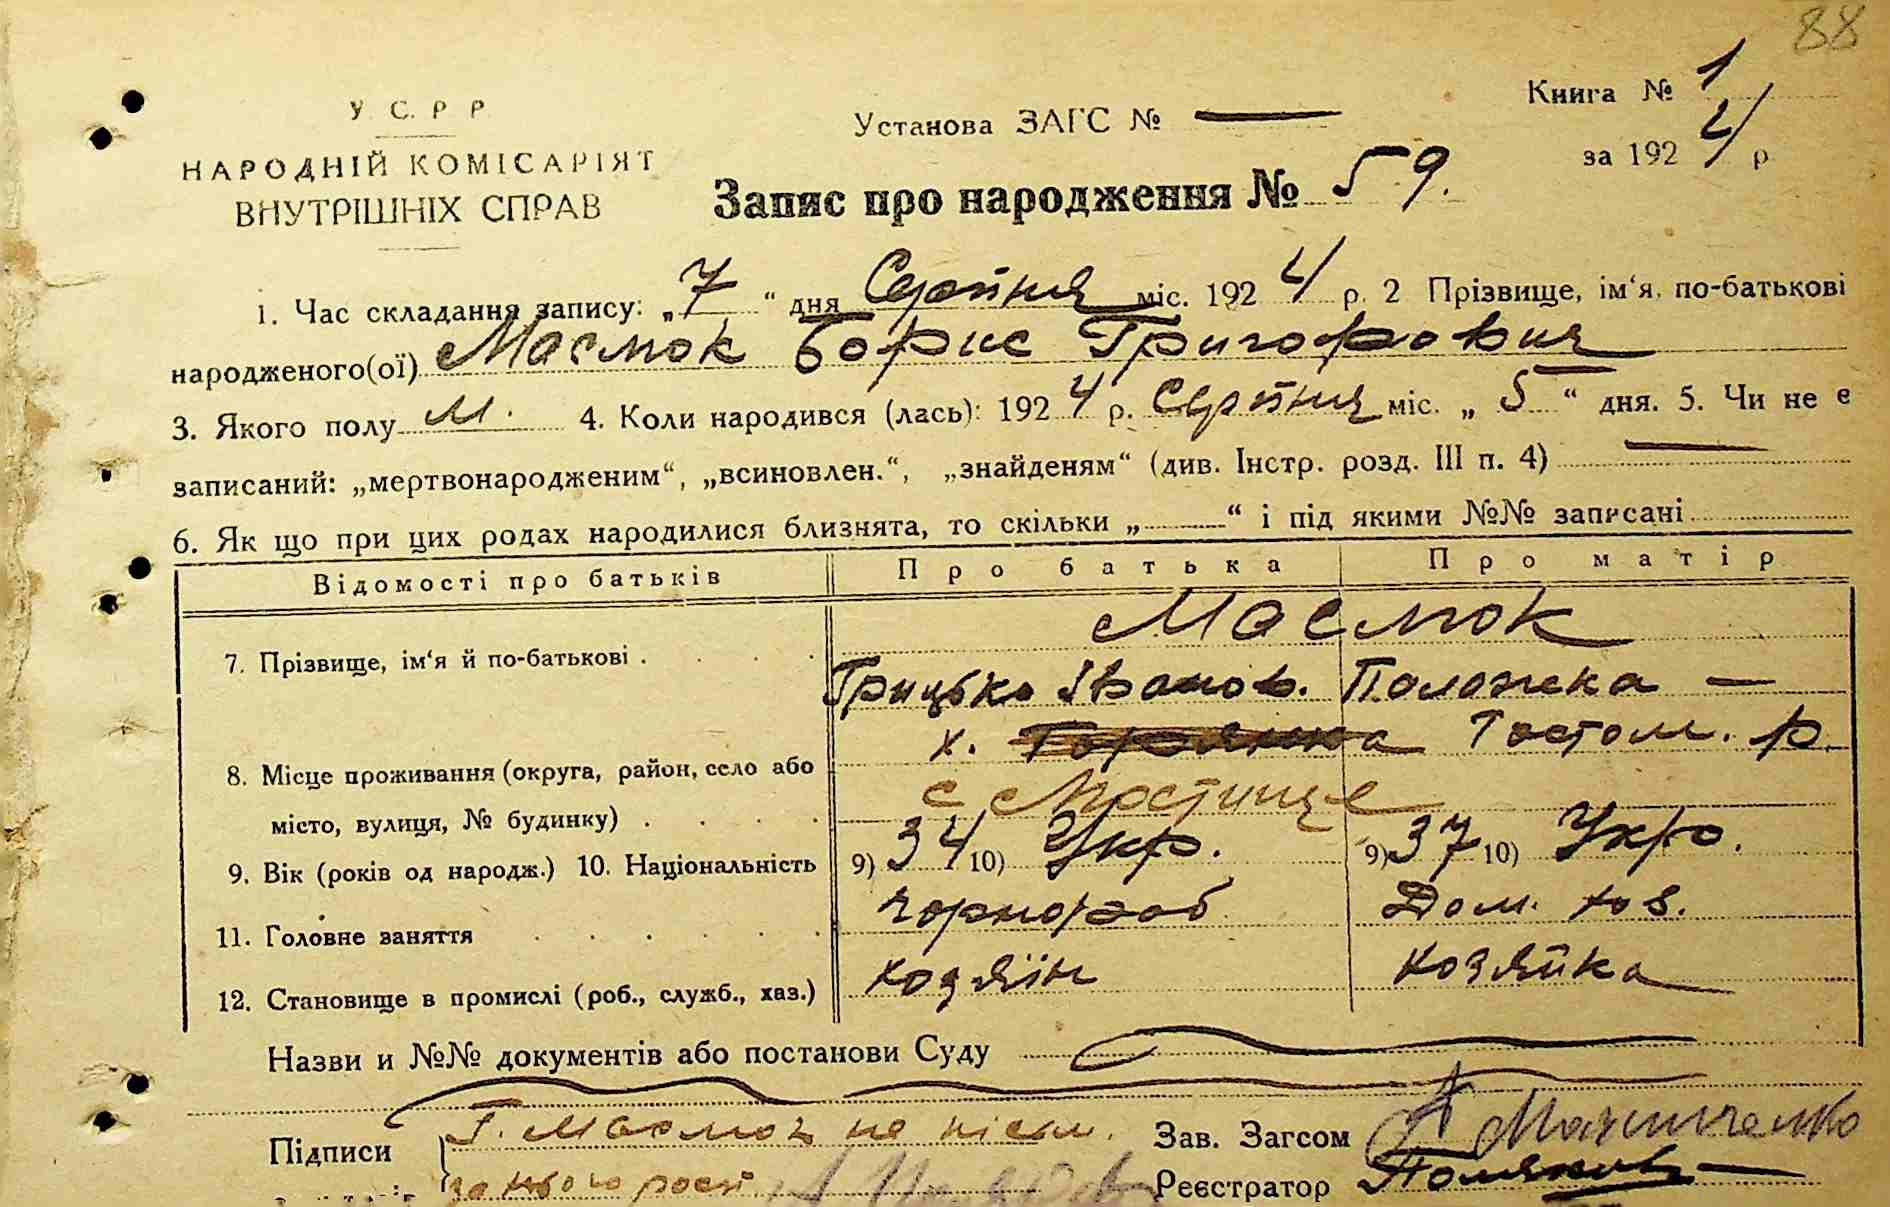 88
Книга № 1
У. С. Р. Р.
Установа ЗАГС № —
за 1924 р
НАРОДНІЙ КОМІСАРІЯТ
ВНУТРІШНІХ СПРАВ
Запис про народження № 59.
1. Час складання запису: „7“ дня Серпня міс. 1924 р. 2 Прізвище, ім‘я, по-батькові
народженого(ої) Масмок Борис Григорович
3. Якого полу м. 4. Коли народився (лась): 1924 р. Серпня міс. „5“ дня. 5. Чи не є
записаний: „мертвонародженим“, „всиновлен.“, „знайденям“ (див. Інстр. розд. III п. 4) —
6. Як що при цих родах народилися близнята, то скільки „ “ і під якими №№ записані
Відомості про батьків Про батька Про матір
Масмок
7. Прізвище, ім‘я й по-батькові .
Грицько Іванов. Палажка —
х. Гостом. р.
8. Місце проживання (округа, район, село або
с Мостище
місто, вулиця, № будинку) .
9. Вік (років од народж.) 10. Національність 9) 34 10) Укр. 9) 37 10) Укр.
11. Головне заняття чорнороб Дом. хоз.
12. Становище в промислі (роб., служб., хаз.) хозяїн хозяйка
Назви и №№ документів або постанови Суду
Підписи Г. Масмок не письм. Зав. Загсом
за нього росп Реєстратор